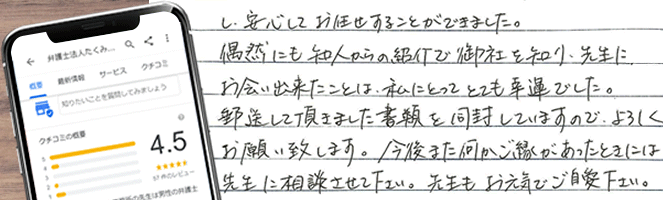 弁護士法人たくみ...
概要 最新情報 サービス クチコミ
知りたいことを質問してみましょう
クチコミの概要
5
4
3
2
1
4.5
57 件のレビュー
務所の先生は男性の弁護士
し、安心してお任せすることができました。
偶然にも知人からの紹介で御社を知り、先生に
お会い出来たことは、私にとってとても幸運でした。
郵送して頂きました書類を同封していますので、よろしく
お願い致します。今後また何かご縁があったときには
先生に相談させて下さい。先生もお元気でご自愛下さい。